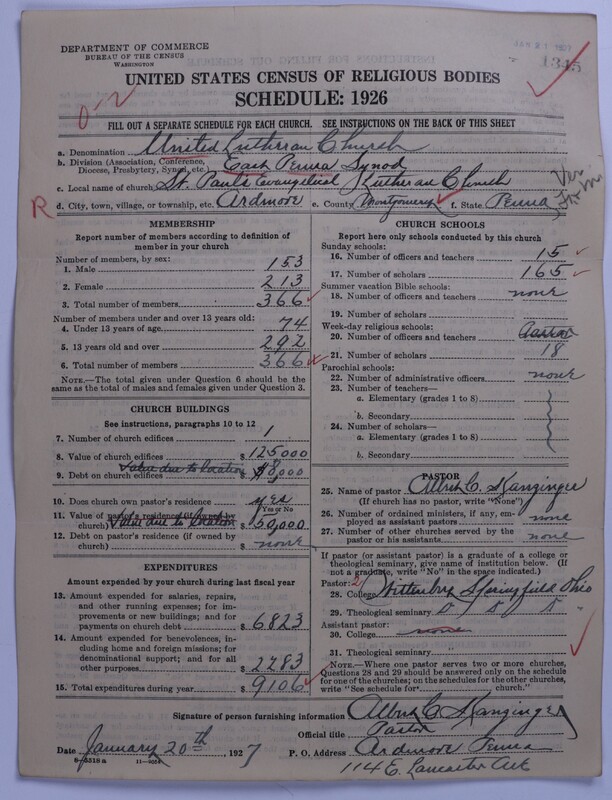 DEPARTMENT OF COMMERCE
BUREAU OF THE CENSUS
WASHINGTON
1345
UNITED STATES CENSUS OF RELIGIOUS BODIES
SCHEDULE: 1926
FILL OUT A SEPARATE SCHEDULE FOR EACH CHURCH. SEE INSTRUCTIONS ON THE BACK OF THIS SHEET
a. Denomination United Lutheran Church
b. Division (Association, Conference, Diocese, Presbytery, Synod, etc.) East Penna Synod
c. Local name of church St. Paul's Evangelical Lutheran Church
R d. City, town, village, or township, etc. Ardmore e. County Montgomery f. State Penna
MEMBERSHIP
Report number of members according to definition of member in your church
Number of members, by sex:
1. Male 153
2. Female 213
3. Total number of members 366
Number of members under and over 13 years old:
4. Under 13 years of age 74
5. 13 years old and over 292
6. Total number of members 366
NOTE.—The total given under Question 6 should be the same as the total of males and females given under Question 3.
CHURCH BUILDINGS
See instructions, paragraphs 10 to 12
7. Number of church edifices 1
8. Value of church edifices $125000
Value due to location
9. Debt on church edifices $8,000
10. Does church own pastor's residence? yes
Yes or No
11. Value of pastor's residence (if owned by church) $50,000
Value due to location
12. Debt on pastor's residence (if owned by church) $ none
EXPENDITURES
Amount expended by your church during last fiscal year
13. Amount expended for salaries, repairs, and other running expenses; for improvements or new buildings; and for payments on church debt $ 6823
14. Amount expended for benevolences, including home and foreign missions; for denominational support; and for all other purposes $ 2283
15. Total expenditures during year $ 9106
CHURCH SCHOOLS
Report here only schools conducted by this church
Sunday schools:
16. Number of officers and teachers 15
17. Number of scholars 165
Summer vacation Bible schools:
18. Number of officers and teachers none
19. Number of scholars
Week-day religious schools:
20. Number of officers and teachers
21. Number of scholars 18
Parochial schools:
22. Number of administrative officers none
23. Number of teachers—
a. Elementary (grades 1 to 8)
b. Secondary
24. Number of scholars—
a. Elementary (grades 1 to 8)
b. Secondary
PASTOR
25. Name of pastor Albert C. Kanzinger
(If church has no pastor, write "None")
26. Number of ordained ministers, if any, employed as assistant pastors none
27. Number of other churches served by the pastor or his assistants none
If pastor (or assistant pastor) is a graduate of a college or theological seminary, give name of institution below. (If not a graduate, write "No" in the space indicated.)
Pastor: 2
28. College Wittenberg Springfield Ohio
29. Theological seminary " " " "
Assistant pastor:
30. College none
31. Theological seminary "
NOTE.—Where one pastor serves two or more churches, Questions 28 and 29 should be answered only on the schedule for one of the churches; on the schedules for the other churches, write "See schedule for church."
Signature of person furnishing information Albert C. Kanzinger
Official title Pastor
Date January 20th, 1927 P. O. Address Ardmore Penna
8-5518 a
114 E. Lancaster Ave